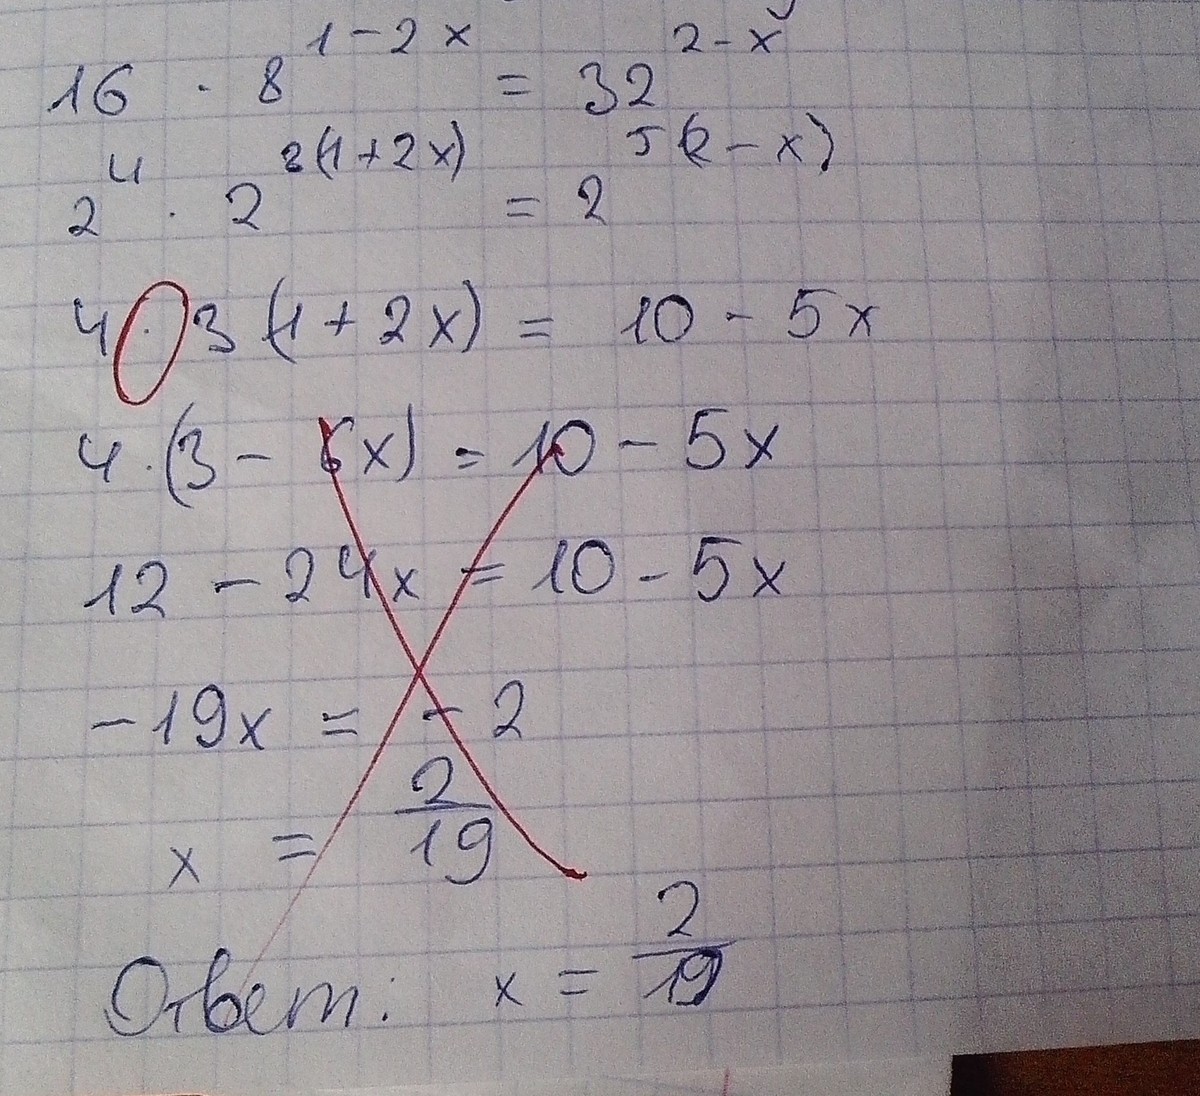 16 · 8^(1-2x) = 32^(2-x)
2^4 · 2^(3(1+2x)) = 2^(5(2-x))
4 · 3(1+2x) = 10 - 5x
4 · (3 - 6x) = 10 - 5x
12 - 24x = 10 - 5x
-19x = -2
x = 2/19
Ответ: x = 2/19